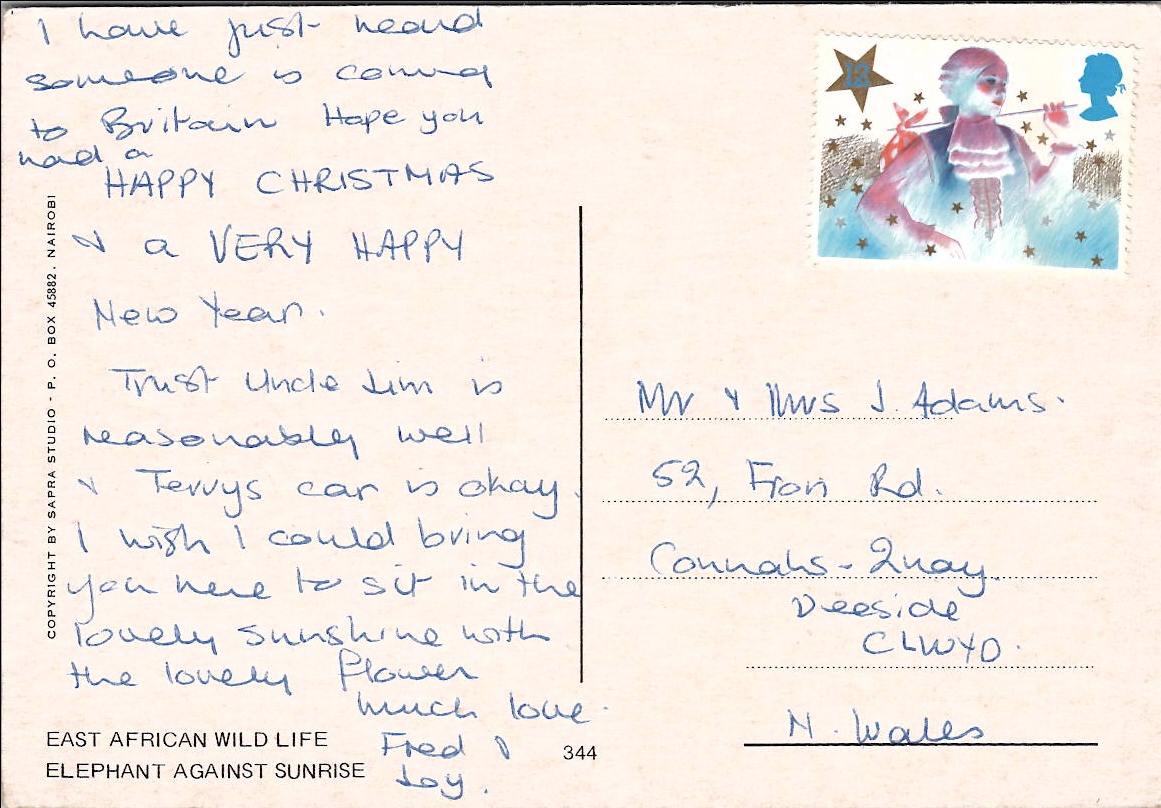 I have just heard
someone is coming
to Britain Hope you
had a
HAPPY CHRISTMAS
& a VERY HAPPY
New Year.
Trust Uncle Jim is
reasonably well
& Terrys car is okay.
I wish I could bring
you here to sit in the
lovely sunshine with
the lovely flower
much love.
Fred &
Joy.
EAST AFRICAN WILD LIFE
ELEPHANT AGAINST SUNRISE
344
COPYRIGHT BY SAPRA STUDIO - P. O. BOX 45882. NAIROBI
12
Mr & Mrs J. Adams.
52, Fron Rd.
Connahs - Quay.
Deeside
CLWYD.
N. Wales